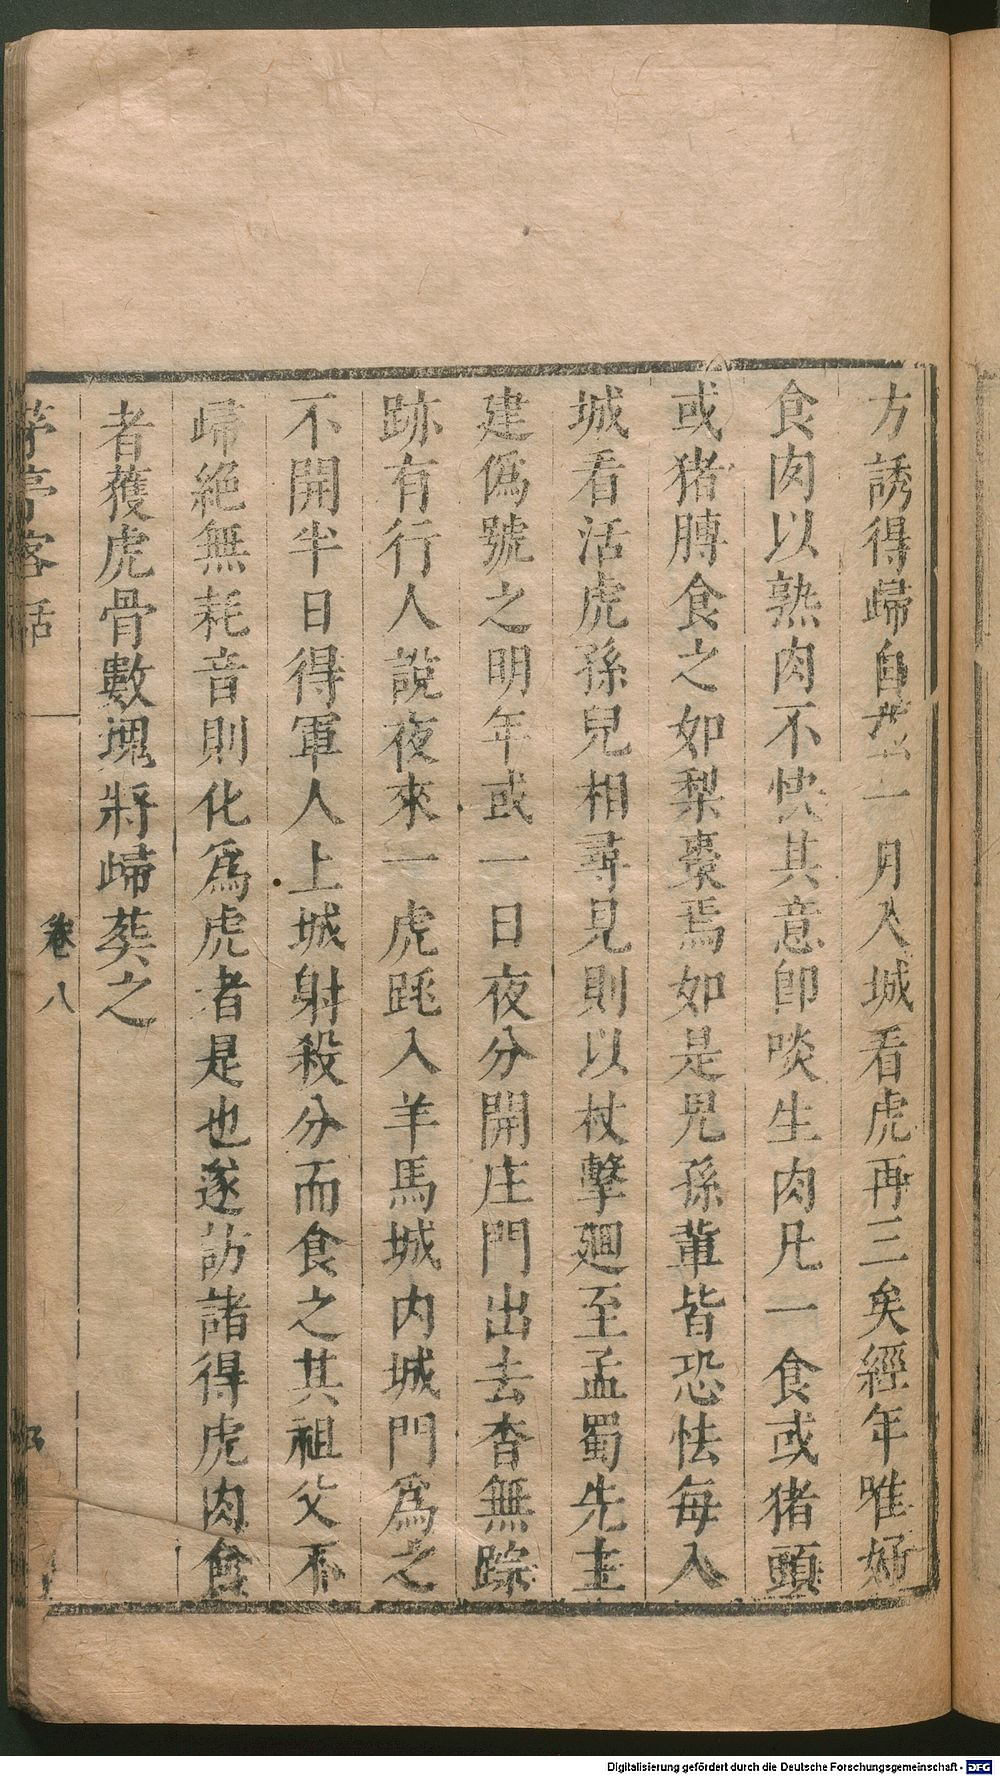 方誘得歸自是一月入城看虎再三矣經年唯好
食肉以熟肉不快其意卽啖生肉凡一食或猪頭
或猪膊食之如梨棗焉如是兒孫輩皆恐怯每入
城看活虎孫兒相尋見則以杖擊廻至孟蜀先主
建僞號之明年或一日夜分開庄門出去杳無踪
跡有行人說夜來一虎跳入羊馬城内城門爲之
不開半日得軍人上城射殺分而食之其祖父不
歸絕無耗音則化爲虎者是也遂訪諸得虎肉食
者獲虎骨數塊將歸葬之
茅亭客話
卷八
Digitalisierung gefördert durch die Deutsche Forschungsgemeinschaft - DFG